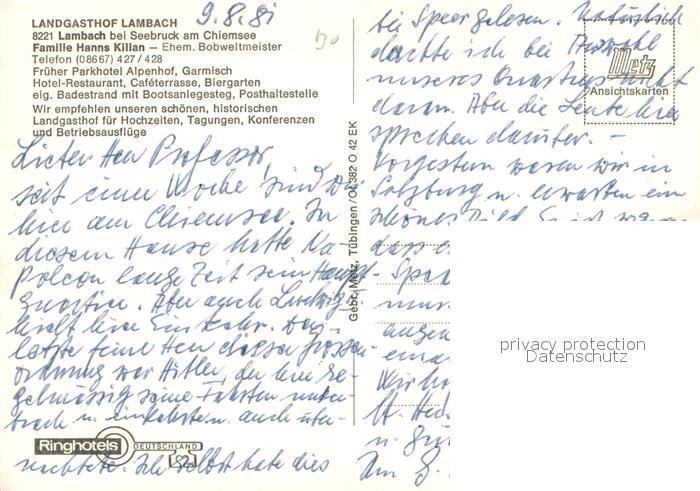 LANDGASTHOF LAMBACH
8221 Lambach bei Seebruck am Chiemsee
Familie Hanns Kilian — Ehem. Bobweltmeister
Telefon (08667) 427 / 428
Früher Parkhotel Alpenhof, Garmisch
Hotel-Restaurant, Caféterrasse, Biergarten
eig. Badestrand mit Bootsanlegesteg, Posthaltestelle
Wir empfehlen unseren schönen, historischen
Landgasthof für Hochzeiten, Tagungen, Konferenzen
und Betriebsausflüge
9.8.81
Lieber Herr Professor,
seit einer Woche sind wir
hier am Chiemsee. In
diesem Hause hatte Na-
poleon lange Zeit sein Haupt-
quartier. Aber auch Ludwig
hielt hier Einkehr. Der
letzte feine Herr dieser Grössen-
ordnung war Hitler, der hier re-
gelmässig seine Fahrten unter-
brach u. einkehrte u. auch über-
nachtete. Ich selbst habe dies
Ringhotels
DEUTSCHLAND
Gebr. Metz, Tübingen
42 EK
bei Speer gelesen. Natürlich
dachte ich bei Auswahl
unseres Quartiers nicht
daran. Aber die Leute hier
sprechen darüber. —
Vorgestern waren wir in
Salzburg u. erwarten ein
schönes
dass
unse
Wir
u.
Metz
Ansichtskarten
privacy protection
Datenschutz